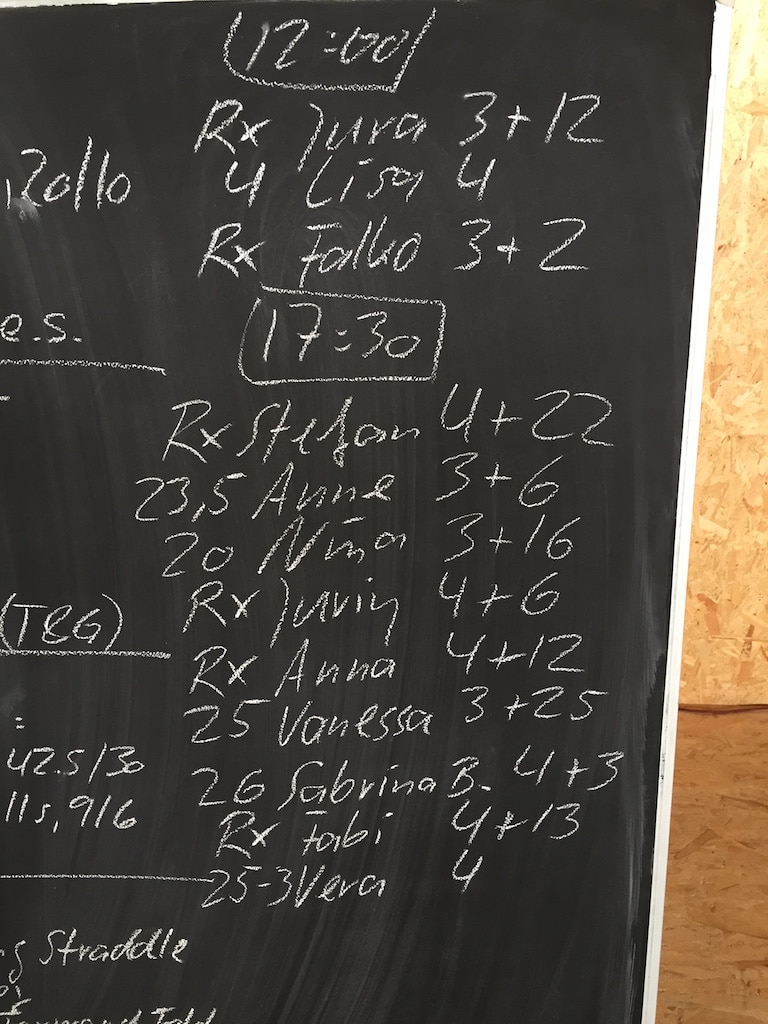 12:00
Rx Jura 3+12
Rollo
4 Lisa 4
Rx Falko 3+2
e.s.
17:30
Rx Stefan 4+22
23,5 Anne 3+6
20 Nina 3+16
Rx 4+6
(T&G)
Rx Anna 4+12
25 Vanessa 3+25
42.5/30
26 Sabrina B. 4+3
9/6
Rx Fabi 4+13
25-3 Vera 4
Straddle